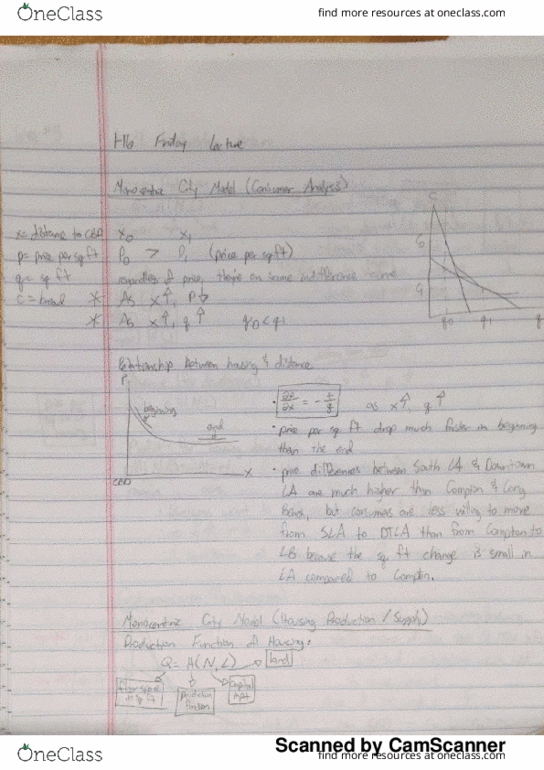 OneClass
find more resources at oneclass.com
H16 Friday Lecture
Monocentric City Model (Consumer Analysis)
x = distance to CBD x₀ x₁
p = price per sq ft P₀ > P₁ (price per sq ft)
q = sq ft regardless of price, they're on same indifference curve
c = bread * As x↑, P↓
* As x↑, q↑ q₀ < q₁
c
q₀ q₁ q
Relationship between housing & distance
P
beginning
end
CBD
x
= - t/q as x↑, q↑
• price per sq ft drop much faster in beginning
than the end
• price differences between South LA & Downtown
LA are much higher than Compton & Long
beach, but consumers are less willing to move
from SLA to DTLA than from Compton to
LB because the sq ft change is small in
LA compared to Compton.
Monocentric City Model (Housing Production / Supply)
Production Function of Housing:
Q = H(N, L) → land
floor space in sq ft
production function
capital input
Scanned by CamScanner
OneClass
find more resources at oneclass.com